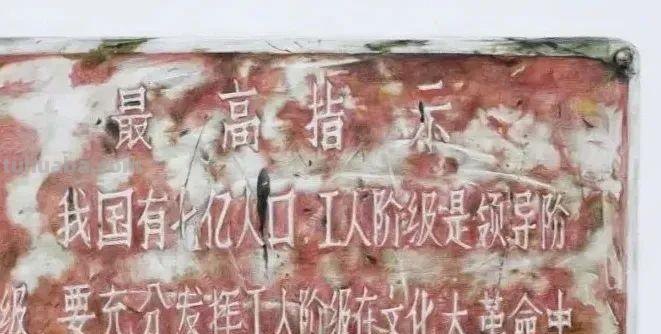 最高指示
我国有七亿人口，工人阶级是领导阶
级 要充分发挥工人阶级在文化大革命中